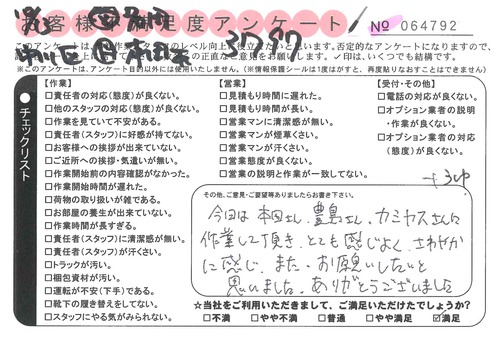 お客様満足度アンケート
№ 064792
3787
※このアンケートは、アンケート目的以外には使用いたしません。(※情報保護シールは1度はがすと、再度貼りなおすことはできません)
チェックリスト
【作業】
□責任者の対応(態度)が良くない。
□他のスタッフの対応(態度)が良くない。
□作業を見ていて不安がある。
□責任者(スタッフ)に好感が持てない。
□お客様への挨拶が出来ていない。
□ご近所への挨拶・気遣いが無い。
□作業開始前の内容確認がなかった。
□作業開始時間が遅れた。
□荷物の取り扱いが雑である。
□お部屋の養生が出来ていない。
□作業時間が長すぎる。
□責任者(スタッフ)に清潔感が無い。
□責任者(スタッフ)が汗くさい。
□トラックが汚い。
□梱包資材が汚い。
□運転が不安(下手)である。
□靴下の履き替えをしてない。
□スタッフにやる気がみられない。
【営業】
□見積もり時間に遅れた。
□見積もり時間が長い。
□営業マンに清潔感が無い。
□営業マンが煙草くさい。
□営業マンが汗くさい。
□営業態度が良くない。
□営業の説明と作業が一致してない。
【受付・その他】
□電話の対応が良くない。
□オプション業者の説明
・作業が良くない。
□オプション業者の対応
(態度)が良くない。
その他、ご意見・ご要望等ありましたらお書き下さい。
今回は本田さん、豊島さん、カミヤスさんに
作業して頂き、とても感じよく、さわやか
に感じ、また、お願いしたいと
思いました。ありがとうございました
☆当社をご利用いただきまして、ご満足いただけたでしょうか?
□不満 □やや不満 □普通 □やや満足 ☑満足